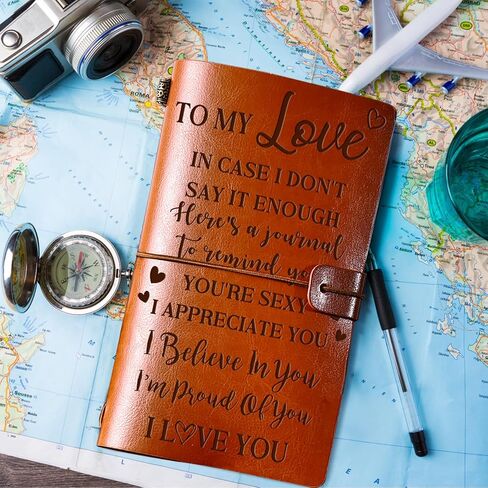 TO MY Love
IN CASE I DON'T
SAY IT ENOUGH
Here's a journal
To remind you
YOU'RE SEXY
I APPRECIATE YOU
I Believe In You
I'm Proud Of You
I LOVE YOU
ROMA